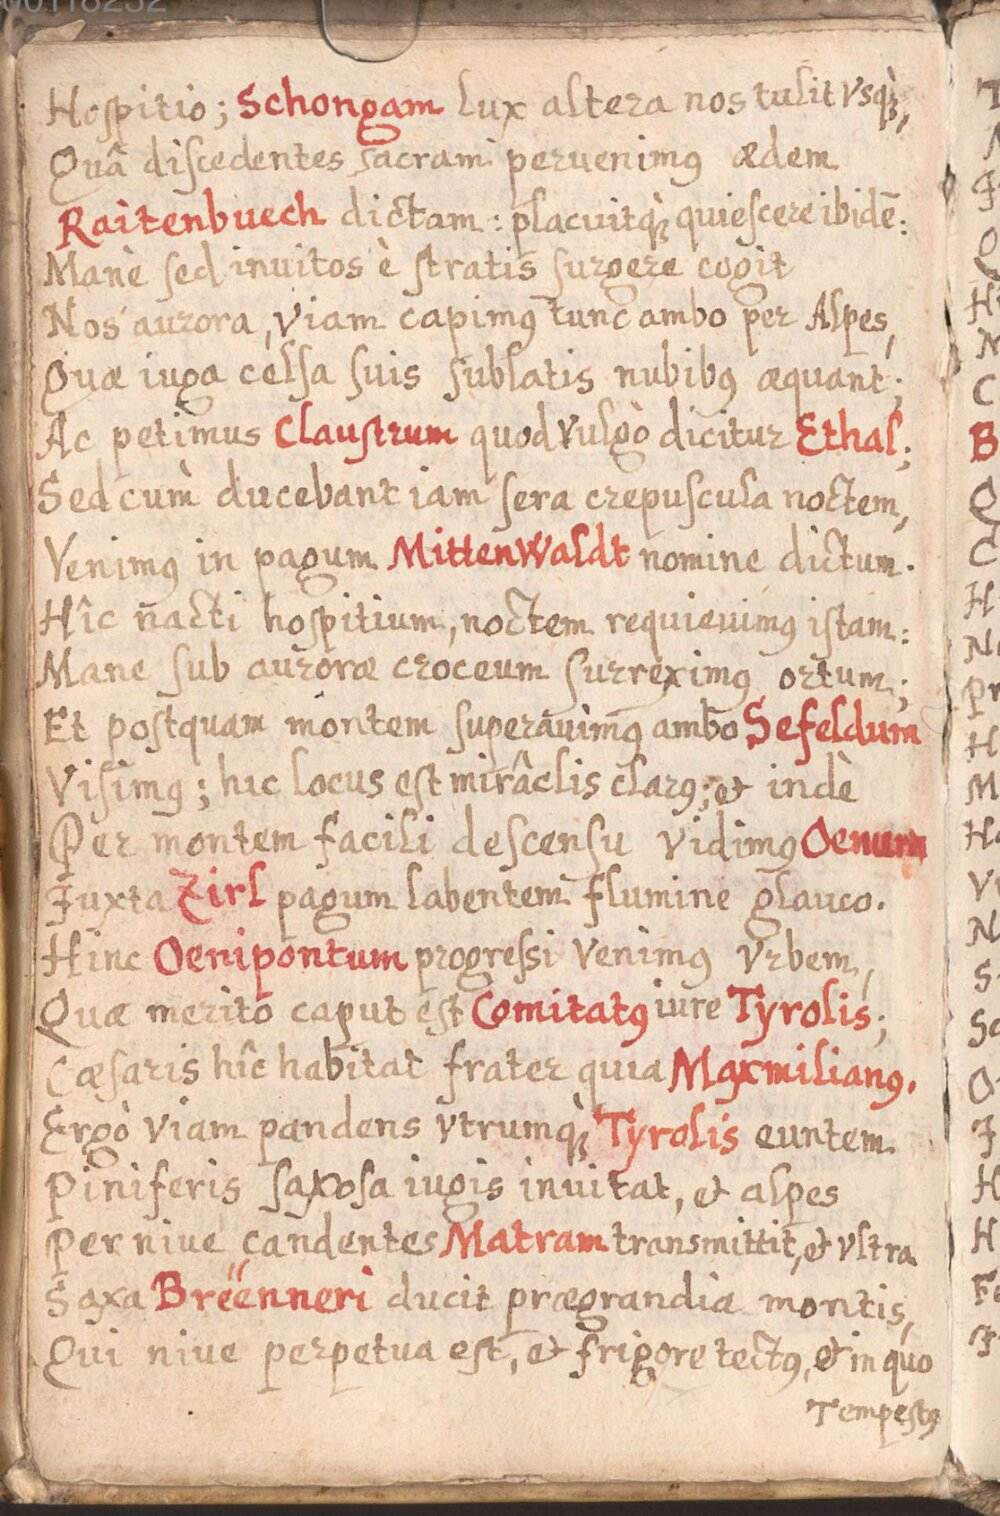 Hospitio; Schongam lux altera nos tulit vsq́;,
Quâ discedentes sacram peruenimꝰ ædem
Raitenbuech dictam: placuitq́; quiescere ibidē:
Manè sed inuitos è stratis surgere cogit
Nos aurora, viam capimꝰ tunc ambo per Alpes,
Quæ iuga celsa suis sublatis nubibꝰ æquant;
Ac petimus Claustrum quod vulgò dicitur Ethal;
Sed cum ducebant iam sera crepuscula noctem,
Venimꝰ in pagum MittenWaldt nomine dictum.
Hîc nacti hospitium, noctem requieuimꝰ istam:
Mane sub auroræ croceum surreximꝰ ortum;
Et postquam montem superauimꝰ ambo Sefeldum
Visimꝰ; hic locus est mirâclis clarꝰ; et indè
Per montem facili descensu vidimꝰ Oenum
Iuxta Zirl pagum labentem flumine glauco.
Hinc Oenipontum progressi venimꝰ vrbem,
Quæ meritò caput est Comitatꝰ iure Tyrolis;
Cæsaris hîc habitat frater quia Maxmilianꝰ.
Ergò viam pandens vtrumq́; Tyrolis euntem
Piniferis saxosa iugis inuitat, et alpes
Per niue candentes Matram transmittit, et vltra
Saxa Breenneri ducit prægrandia montis,
Qui niue perpetua est, et frigore tectꝰ, et in quo
Tempestꝰ